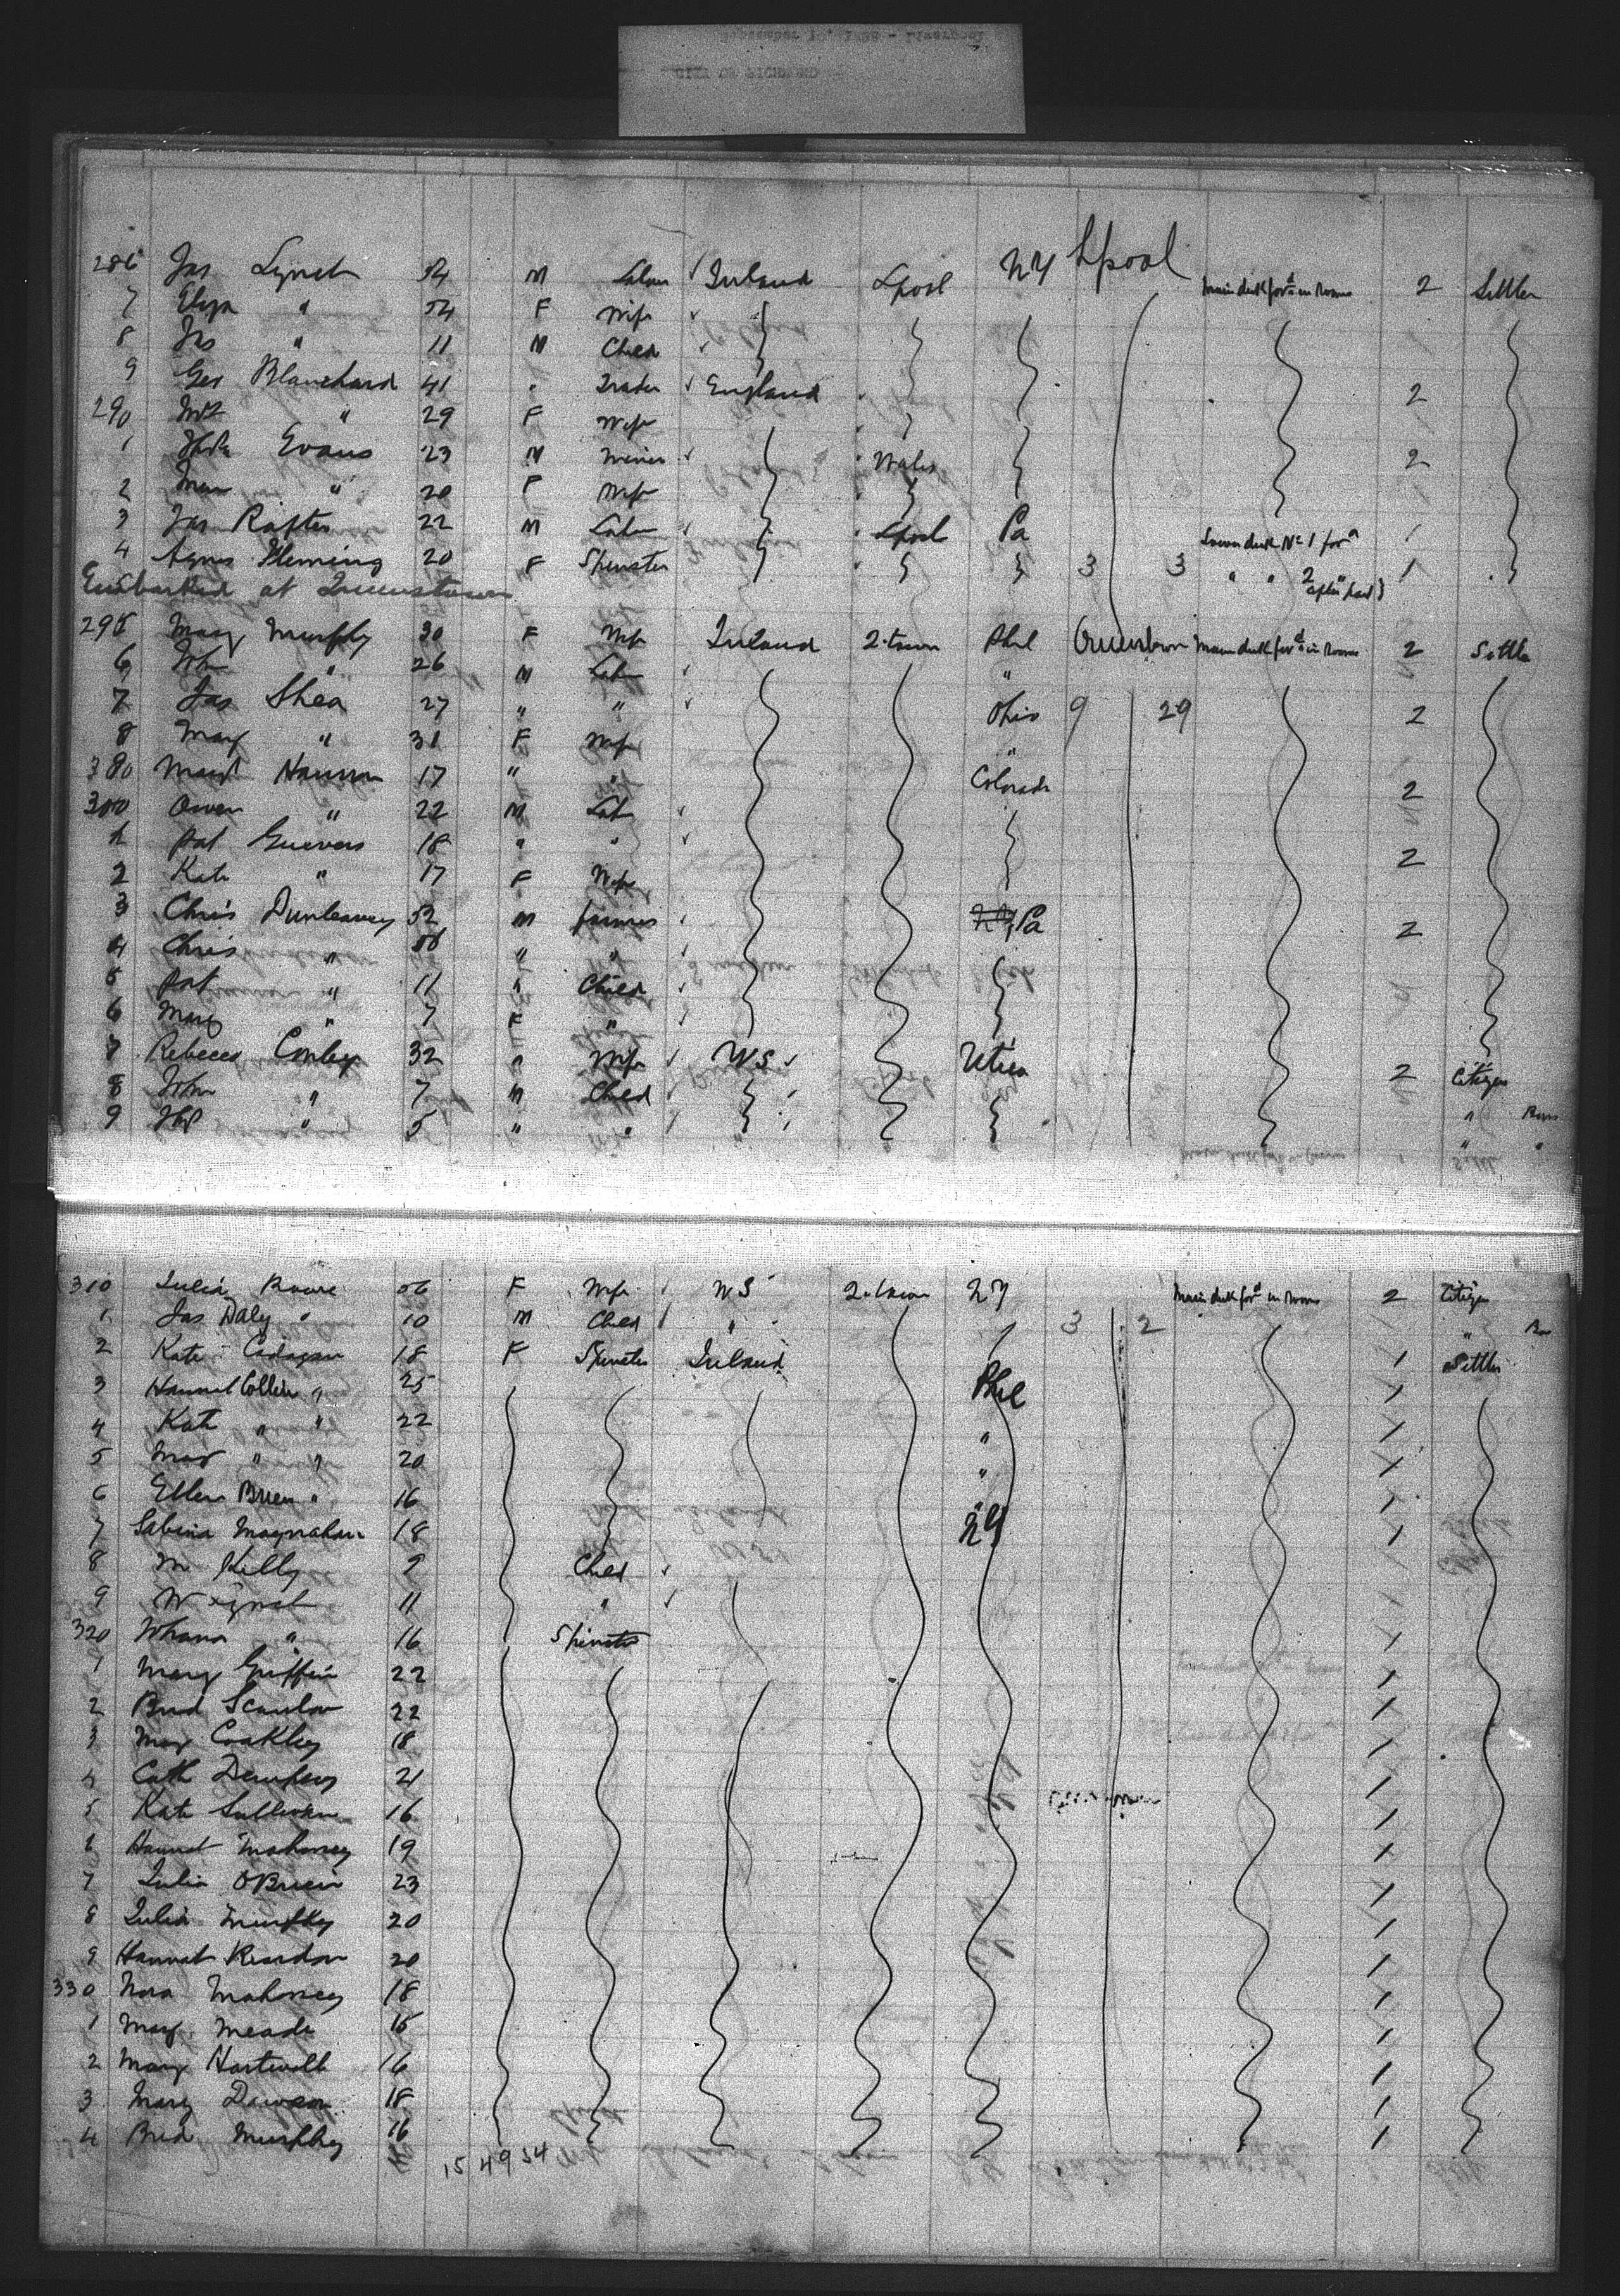 CITY OF RICHMOND
286 Jas Lynch 54 M Labour Ireland Lpool NY Lpool Main deck for'd in rooms 2 Settler
7 Eliza " 54 F Wife
8 Jas " 11 M Child
9 Geo Blanchard 41 " Trader England 2
290 Mrs " 29 F Wife
1 Evans 23 M Miner Wales 2
2 " 20 F Wife
3 Jas Rafter 22 M Labr Lpool Pa 1
Lower deck No 1 for'd
4 Agnes Fleming 20 F Spinster 3 3 " " 2 1
Embarked at Queenstown
295 Mary Murphy 30 F Wife Ireland Q.town Phil Main deck for'd in rooms 2 Settler
6 Jno " 26 M Lab "
7 Jas Shea 27 " " Ohio 9 29 2
8 Mary " 31 F Wife "
Hannon 17 " " Colorado 2
300 Owen " 22 M Lab
1 Pat 18 " " 2
2 Kate " 17 F Wife
3 Chris Dunleavey 52 M farmer Pa 2
4 Chris " " "
5 Pat " 11 " Child
6 Mary " 7 F "
7 Rebecca Conley 32 " Wife US Utica 2 Citizen
8 John " 7 M Child "
9 " 5 " " "
310 Julia 56 F Wife US Q.town NY Main deck for'd in rooms 2 Citizen
1 Jas Daly " 10 M Child " 3 2 "
2 Kate Cadogan 18 F Spinster Ireland 1 Settler
3 Hannah Collins " 25 Phil 1
4 Kate " " 22 " 1
5 Mary " " 20 " 1
6 Ellen Brien " 16 " 1
7 Sabina Moynahan 18 NY 1
8 M Kelly 9 Child
9 W Lynch 11 "
320 Johana " 16 Spinster 1
1 Mary Griffin 22 1
2 Brid Scanlon 22 1
3 Mary Coakley 18 1
4 Cath Dempsey 21 1
5 Kate Sullivan 16 1
6 Hannah Mahoney 19 1
7 Julia OBrien 23 1
8 Julia Murphy 20 1
9 Hannah Reardon 20 1
330 Nora Mahoney 18 1
1 Mary Meade 1
2 Mary Hartwell 16 1
3 Mary 18 1
4 Brid Murphy 16 1
15 49 54